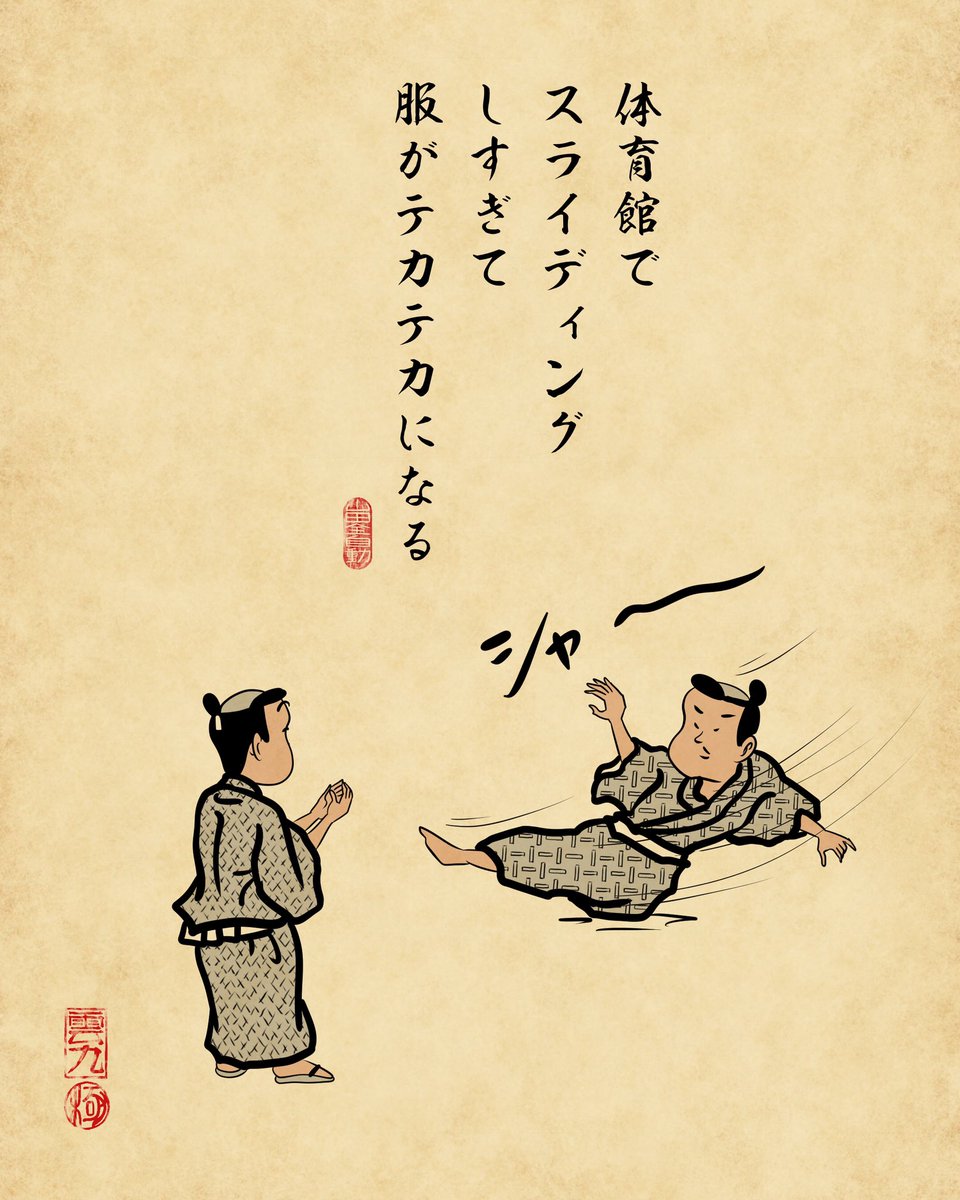 体育館で
スライディング
しすぎて
服がテカテカになる
シャー